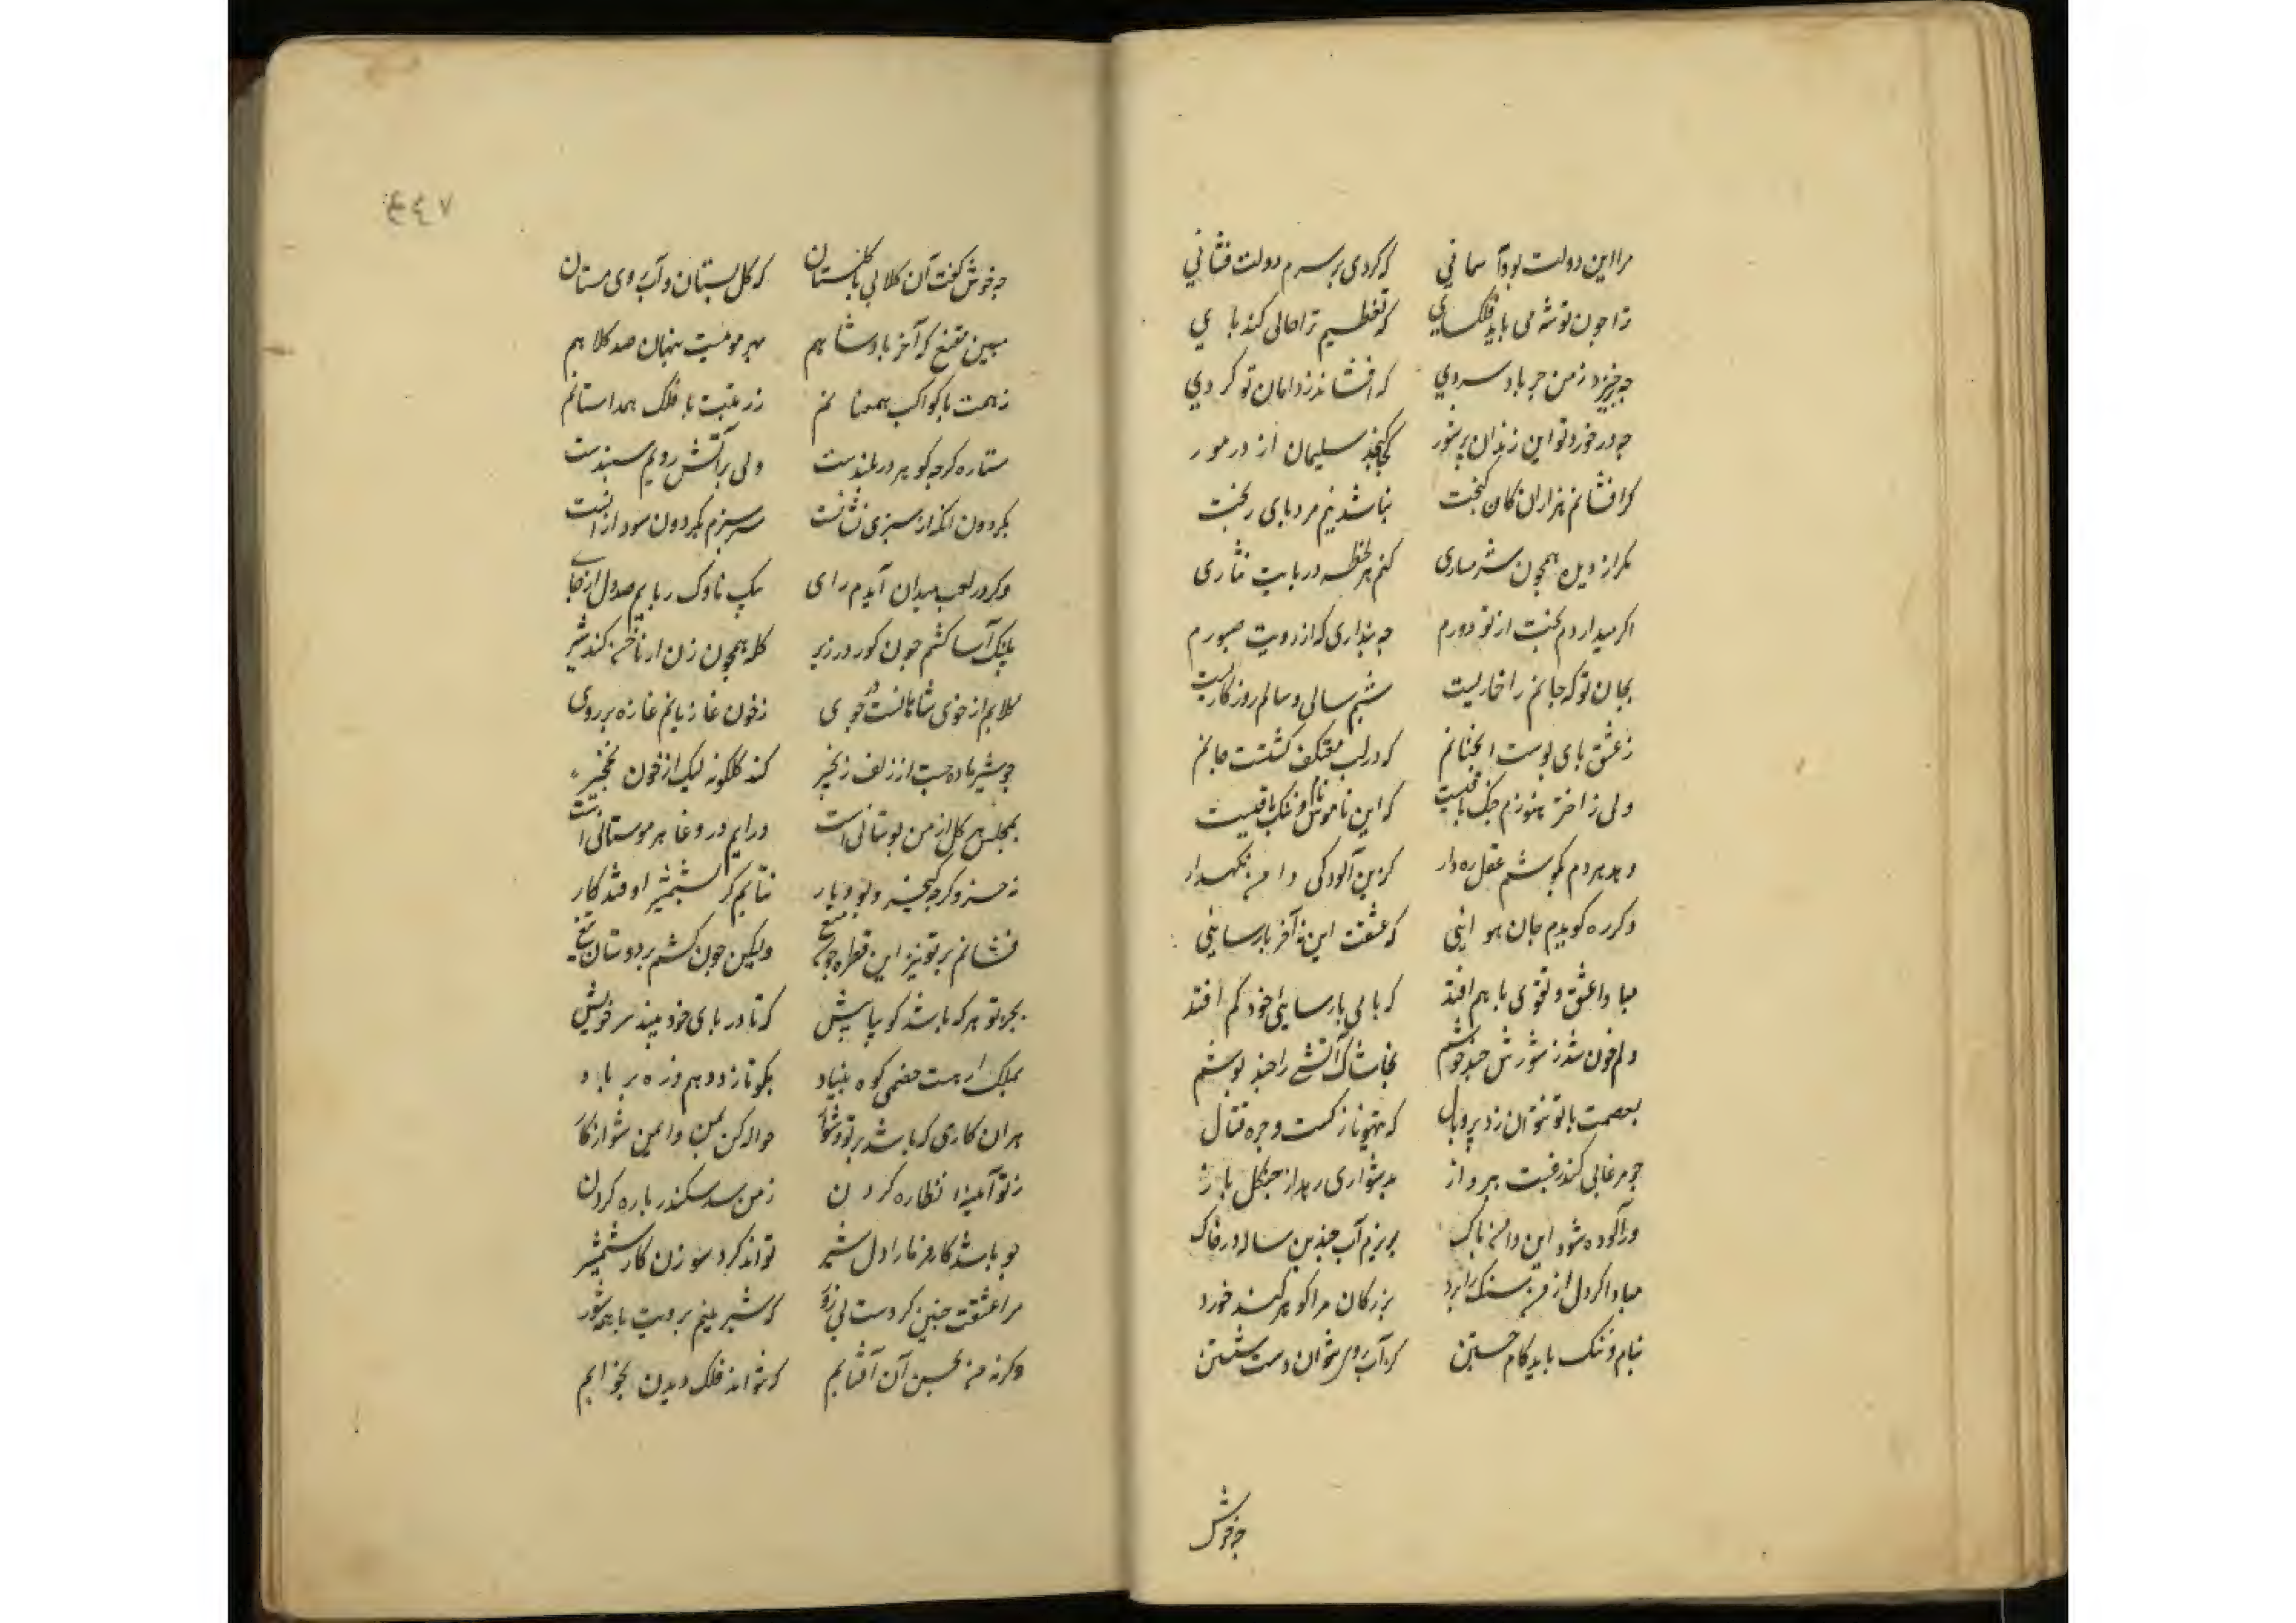 مرا این دولت بود آسمانی که کردی بر سرم دولت فشانی
ترا چون تو شه می باید فلکسای که تعظیم ترا حالی کند بای
چه خیزد ز من جز باد سردی که افشاند ز دامان تو کردی
چه در خورد تو این زندان پرشور کجا کنجد سلیمان در مور
کر افشانم هزاران کان کنجت نباشد نیم مرد بای رنجت
مکر از دیده همچون شرمساری کنم هر لحظه در بایت نثاری
اکر میدارد بخت از تو دورم چه بنداری که از رویت صبورم
بجان تو که جانم را خاریست شبم سالی و سالم روزکاریست
ز عشق بای بوست انجنانم که در لب معتکف کشتست جانم
ولی ز اختر هنوزم جنک باقیست که این ناموس نام و ننک باقیست
دهد هر دم بکوشم عقل ره دار کزین آلودکی دامن نکهدار
دکر ره کویدم جان هوایی که عشقت این نه آخر بارسایی
مبادا عشق و تقوی با هم افتد که بای بارسایی خود کم افتد
دلم خون شد ز شورش چند جوشم بخاشاک آتشی را چند بوشم
بعصمت با تو نتوان زد پر و بال که تیهو نازکست و جره قتال
چو مرغابی کند رغبت ببرواز بدشواری رهد از چنکل باز
ور آلوده شود این دامن باک بریزم آب چندین ساله در خاک
مبادا کر دل از من سنک را برد بزرکان مرا کوهر کند خورد
بنام و ننک باید کام جستن کز آب روی نتوان دست شستن
چه خوش
٤٤٧
چه خوش کفت آن کلابی با کلستان که کل بستان و آب روی مستان
مبین مقنع که آخر بادشاهم بهر مویست بنهان صد کلاهم
ز همت با کواکب همعنانم ز رغبت با فلک همداستانم
ستاره کرچه کوهر در بلندست ولی بر آتش رویم سبندست
بکردون انکه از سبزی نشانست سر سبزم بکردون سود از انست
وکر در لعب میدان آیدم رای بیک ناوک ربایم صد دل از جای
بلنک آسا کشم چون کور در زیر کله همچون زنان از ناخن کند شیر
کلابم از خوی شاهانست در جوی ز خون غازیانم غازه بر روی
چو شیر ماده جست از زلف زنجیر کند کلکونه لیک از خون نخجیر
بمجلس هر کل از من بوستانی است در ایم در وغا هر مو سنانی است
نه خسرو کرچه کیخسرو بود یار نتابم کر بشمشیر اوفتد کار
فشانم بر تو نیز این قطره چو میغ ولیکن چون کشم بر دوستان تیغ
بجز تو هر که باشد کو بیا پیش که تا در بای خود بیند سر خویش
بملک ار هست خصمی کوه بنیاد بکو تا زد دهم ذره بر باد
هر ان کاری که باشد بر تو دشوار حواله کن بمن و ایمن شو از کار
ز تو آیینه نظاره کردن ز من سد سکندر باره کردن
چو باشد کارفرما را دل شیر تواند کرد سوزن کار شمشیر
مرا عشقت چنین کردست بی زور که شیرینم برویت با همه شور
وکر نه من بحسن آن آفتابم که نتواند فلک دیدن بخوابم